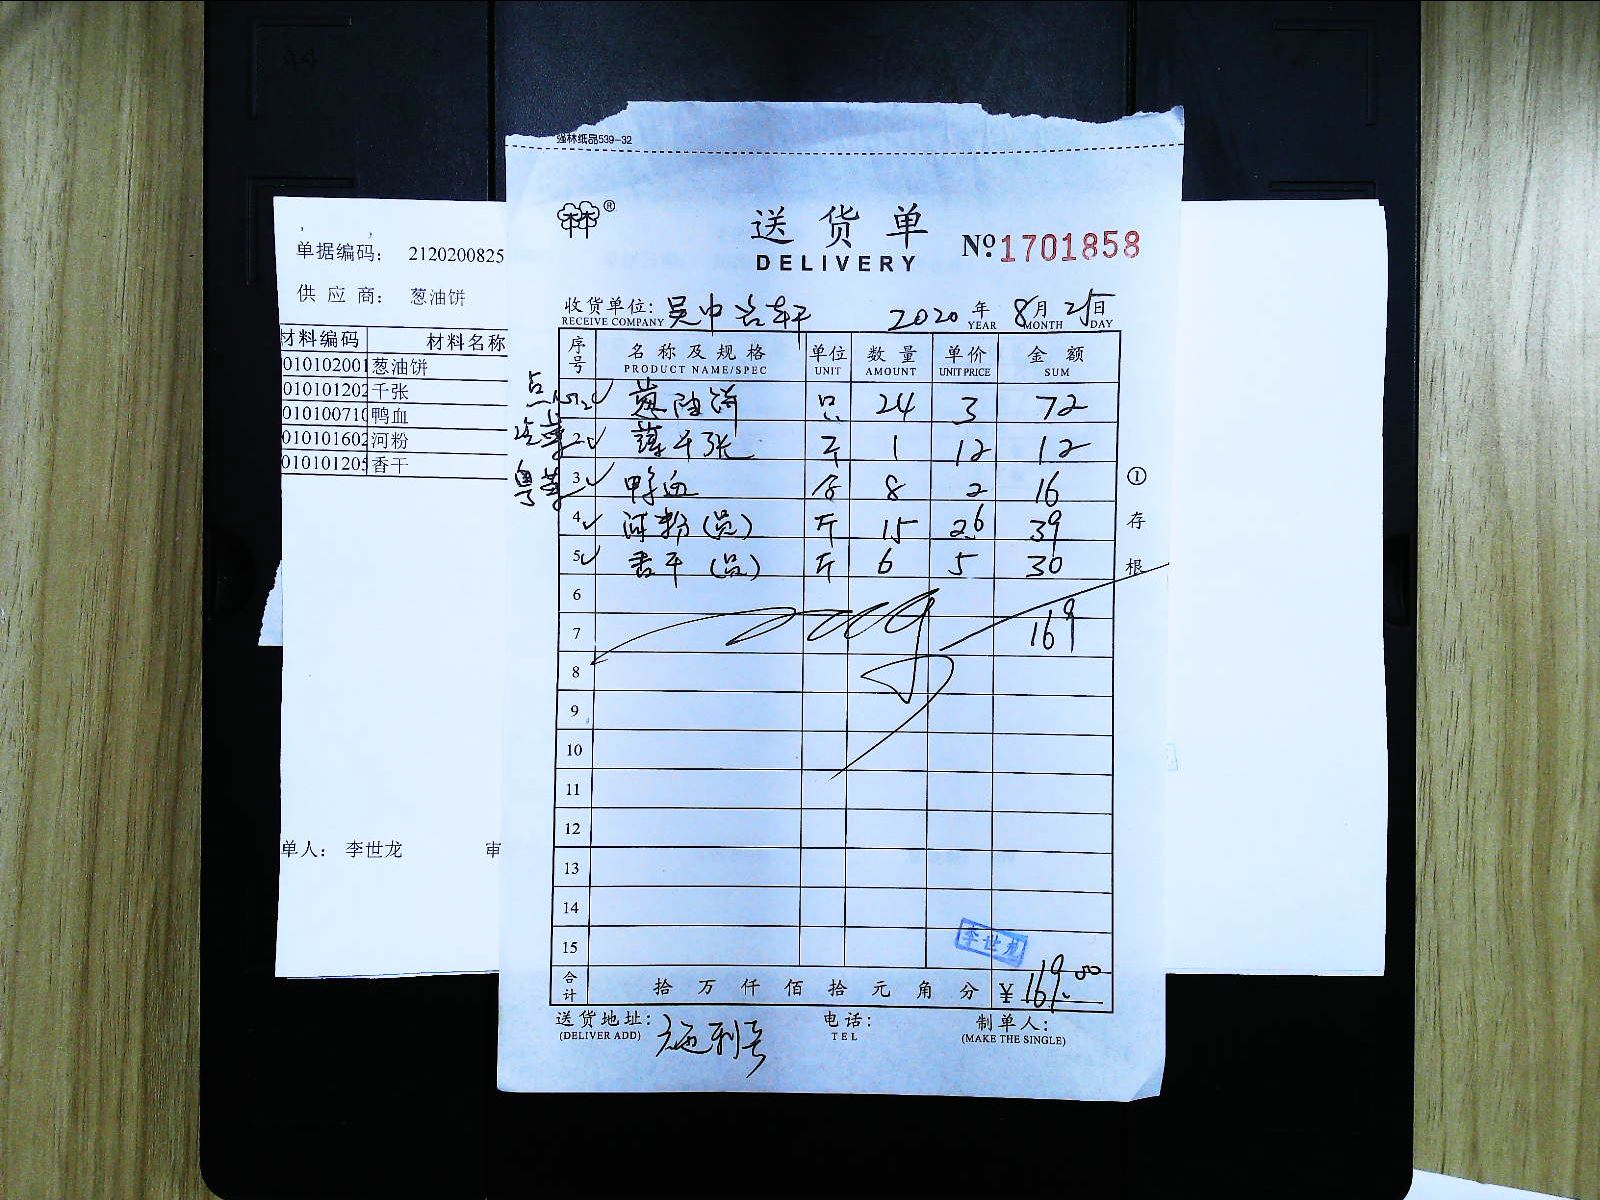 强林纸品539-32
送货单
DELIVERY
№1701858
单据编码： 2120200825
供 应 商： 葱油饼
材料编码 材料名称
010102001 葱油饼
010101202 千张
010100710 鸭血
010101602 河粉
010101205 香干
单人： 李世龙 审
收货单位: 吴中 2020 年 8 月 25 日
RECEIVE COMPANY YEAR MONTH DAY
序号 名称及规格 单位 数量 单价 金额
PRODUCT NAME/SPEC UNIT AMOUNT UNIT PRICE SUM
点心 1 葱油饼 只 24 3 72
冷菜 2 薄千张 斤 1 12 12
粤菜 3 鸭血 合 8 2 16
4 河粉（员） 斤 15 2.6 39
5 香干（员） 斤 6 5 30
6
7 169
8
9
10
11
12
13
14
15
李世龙
合计 拾 万 仟 佰 拾 元 角 分 ¥ 169.00
送货地址: 电话: 制单人:
(DELIVER ADD) TEL (MAKE THE SINGLE)
①存根